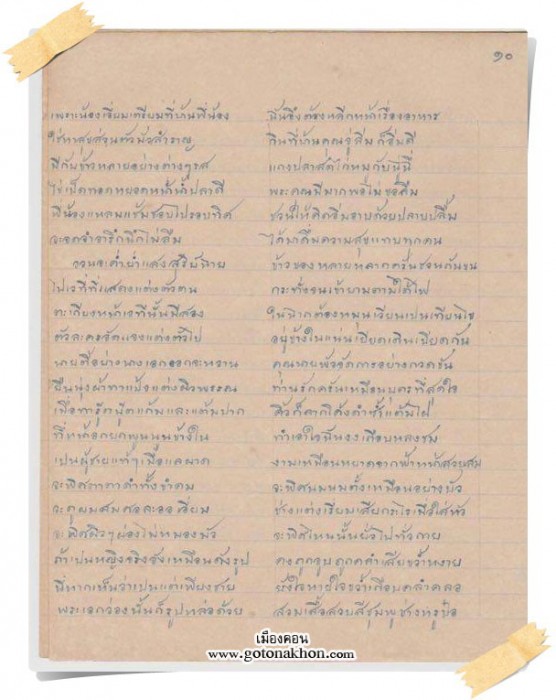 ๑๐
เพราะน้องเอี่ยมเตรียมที่บ้านพี่น้อง ฉันจึงต้องหลีกหน้าเรื่องอาหาร
ใช้หาสุขส่วนตัวมัวสำราญ กินที่บ้านคุณอู๋สืบก็อิ่มดี
มีกับข้าวหลายอย่างต่างๆรส
ไข่เป็ดทอดหยอดหน้าน้ำปลาดี พระคุณมีมากพอไม่ขอลืม
พี่น้องแหลมแช่มช้อยไปรอบทิศ ชวนให้คิดอิ่มอาบด้วยปลาบปลื้ม
จะจดจำจารึกนึกไม่ลืม ได้มาดื่มความสุขแทบทุกคน
จวนจะค่ำย่ำแสงสุริย์ฉาย ข้าวของหลายหลาก
ไปเวทีที่แสดงแต่งตัวตน
ตะเกียงหน้าเวทีนั้นมีสอง
ตัวละครจัดแจงแต่งตัวไป อยู่ข้างในแน่นเบียดเสียดกัน
นายดีอย่างนางเอกออกจะหวาน คุณนายหัวจัดการอย่างกวดขัน
ยืนนุ่งผ้าทาแป้งแต่งผิวพรรณ ท่านรักฉันเหมือนบุตรที่สุดใจ
เมื่อทารูจถูตแก้มและแต้มปาก คิ้วก็ลากโค้งดำซ้ำแต้มไฝ
ทำเอาใจฉันงงเกือบหลงชม
เป็นผู้ชายแท้ๆเมื่อแลมาด งามเหมือนหยาดจากฟ้าหน้าสวยสม
จะพิศตาตาดำทั้งขำคม จะพิศนมนมตั้งเหมือนอย่างบัว
จะดูผมสมศอละออเอี่ยม ช่างแต่งเรียมเสียกระไรเมื่อใส่หัว
จะพิศผิวๆผ่องไม่หมองมัว จะพิศไหนนั้นยั่วไปทั่วกาย
ถ้าเป็นหญิงจริงจังเหมือนดังรูป คงถูกจูบถูกคลำเสียขว้ำหงาย
นี่หากเห็นว่าเป็นแต่เพียงชาย ยังใจหายใจคว่ำเกือบคลำคลอ
พระเอกว่องนั้นก็รูปหล่อด้วย สวมเสื้อสวยสีชมพูช่างหรูป๋อ
เมืองคอน
www.gotonakhon.com